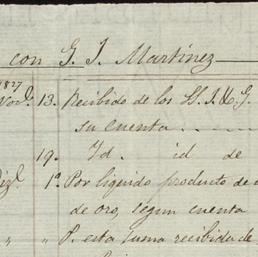 con G. J. Martinez
1827
Novbe. 13. Recibido de los SS. J. & G.
su cuenta
19. Id. id de
Dize. 1º. Por liquido producto de
de oro, segun cuenta
" " P. esta suma recibida de